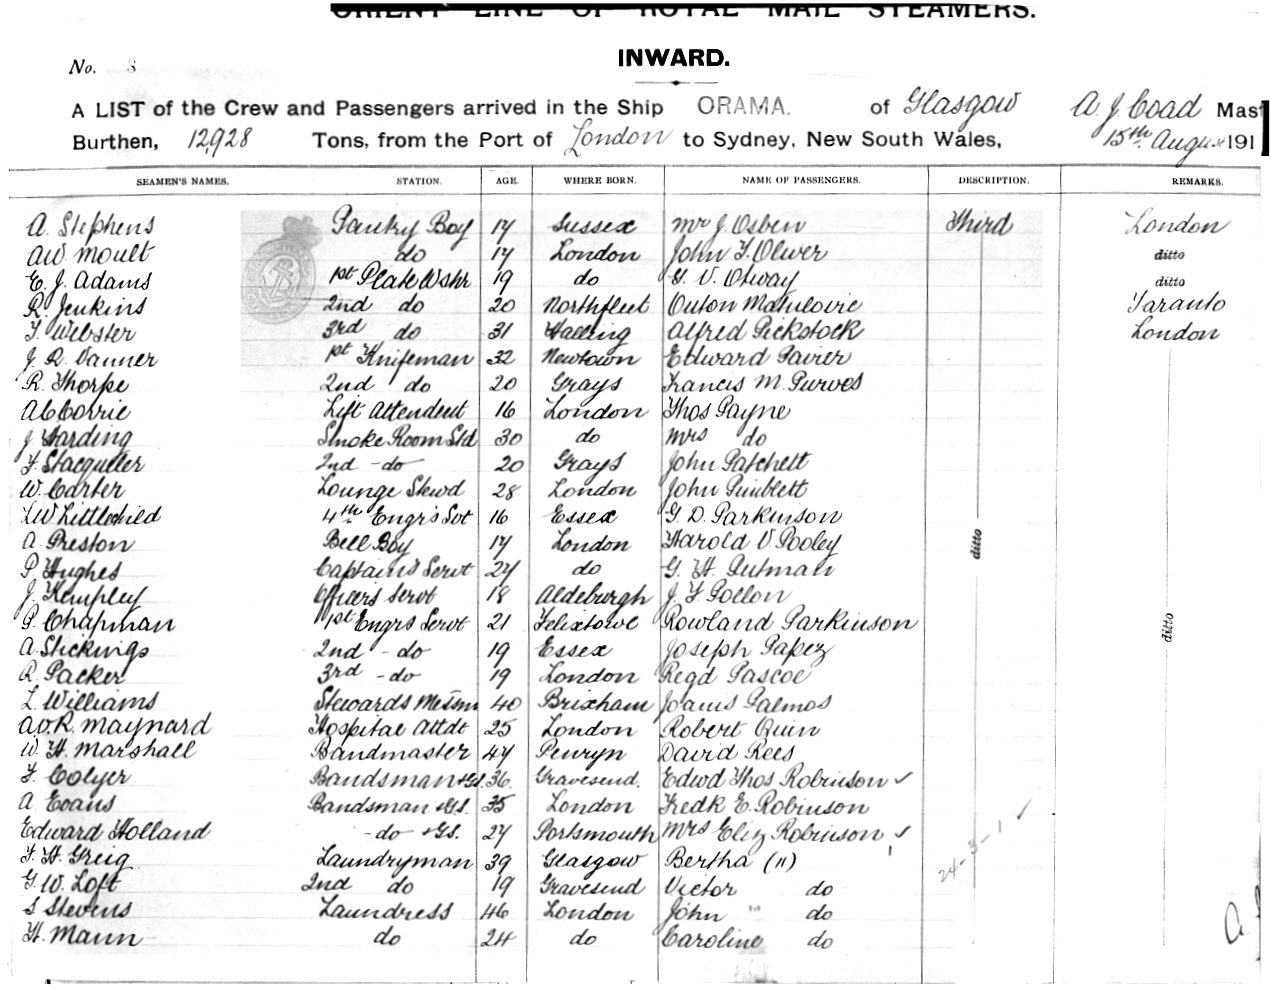 ORIENT LINE OF ROYAL MAIL STEAMERS.
INWARD.
No. 8
A LIST of the Crew and Passengers arrived in the Ship ORAMA. of Glasgow A. J. Coad Mast
Burthen, 12,928 Tons, from the Port of London to Sydney, New South Wales, 15th August 191
SEAMEN'S NAMES. STATION. AGE. WHERE BORN. NAME OF PASSENGERS. DESCRIPTION. REMARKS.
A. Stephens Pantry Boy 17 Sussex Mr J. Osben Third London
A W Moult do 17 London John F. Oliver ditto
E. J. Adams 1st Plate Washr 19 do G. V. Otway ditto
R. Jenkins 2nd do 20 Northfleet Matulovic Taranto
F. Webster 3rd do 31 Halling Alfred Pickstock London
J. R. Vanner 1st Knifeman 32 Newtown Edward Pavier
R. Thorpe 2nd do 20 Grays Francis M. Purves
A C Corrie Lift Attendent 16 London Thos Payne
J Harding Smoke Room Std 30 do Mrs do
F. 2nd - do 20 Grays John Patchett
W. Carter Lounge Stewd 28 London John Pimblett
L W Littlechild 4th Engrs Svt 16 Essex G. D. Parkinson
A. Preston Bell Boy 17 London Harold V. Pooley
P Hughes Captains Servt 27 do G. H. Putman
J. Kempley Officers Servt 18 Aldeburgh J F Pollon
P. Chapman 1st Engrs Servt 21 Felixtowe Rowland Parkinson
A Stickings 2nd - do 19 Essex Joseph Papez
R. Packer 3rd - do 19 London Regd Pascoe
L. Williams Stewards Messm 40 Brixham Joanis Palmos
A. V. R. Maynard Hospital Attdt 25 London Robert Quin
W. H. Marshall Bandmaster 47 Penryn David Rees
F. Colyer Bandsman + G.S. 36 Gravesend. Edwd Thos Robinson ✓
A Evans Bandsman + G.S. 35 London Fredk E. Robinson
Edward Holland - do + G.S. 27 Portsmouth Mrs Eliz Robinson ✓
F. H. Greig Laundryman 39 Glasgow Bertha (")
G. W. Loft 2nd do 19 Gravesend Victor do
S Stevens Laundress 46 London John " do
H. Mann do 24 do Caroline do
ditto
ditto
24-3-1 ✓